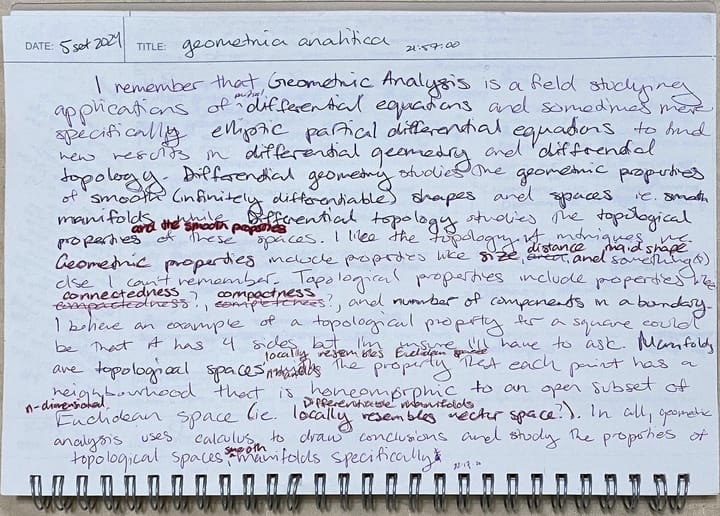 DATE: 5 set 2021 TITLE: geometria analitica 21:57:00
I remember that Geometric Analysis is a field studying
applications of partial differential equations and sometimes more
specifically elliptic partial differential equations to find
new results in differential geometry and differential
topology. Differential geometry studies the geometric properties
of smooth (infinitely differentiable) shapes and spaces i.e. smooth
manifolds while differential topology studies the topological
and the smooth properties
properties of these spaces. I like the topology
Geometric properties include properties like size, area, distance and shape and something(s)
else I can't remember. Topological properties include properties like
connectedness compactness
compactedness?, completness?, and number of components in a boundary.
I believe an example of a topological property for a square could
be that it has 4 sides but I'm unsure I'll have to ask. Manifolds
locally resembles Euclidean space
are topological spaces the property that each point has a
neighbourhood that is homeomorphic to an open subset of
n-dimensional Differentiable manifolds
Euclidean space (ie. locally resembles vector space?). In all, geometric
analysis uses calculus to draw conclusions and study the properties of
smooth
topological spaces, manifolds specifically.